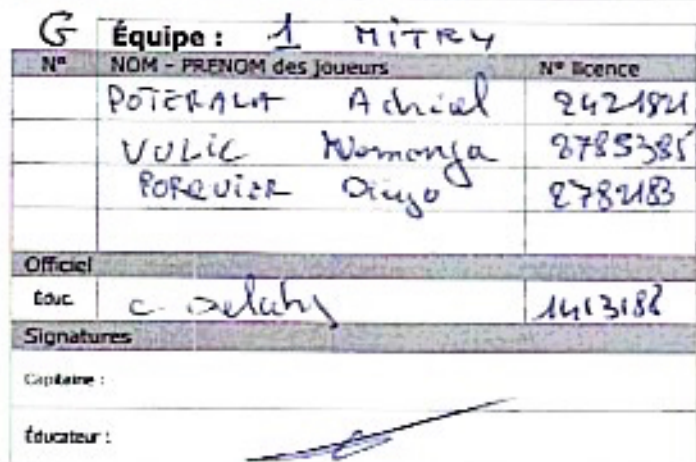 G Équipe : 1 MITRY
N° NOM - PRENOM des joueurs N° licence
POTERALA Adriel 2421821
VULIC Nemanja 2785385
PORQUIER Diego 2782183
Officiel
Éduc. c. 1413188
Signatures
Capitaine :
Éducateur :